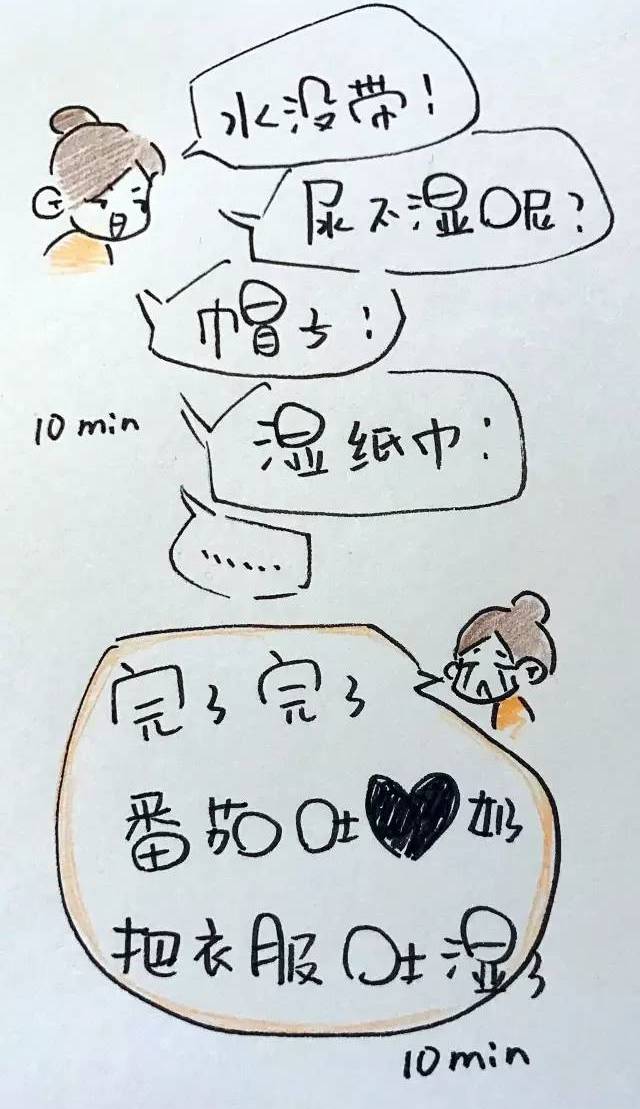 水没带！
尿不湿呢？
帽子！
10 min
湿纸巾！
......
完了完了
番茄吐奶
把衣服吐湿了
10 min